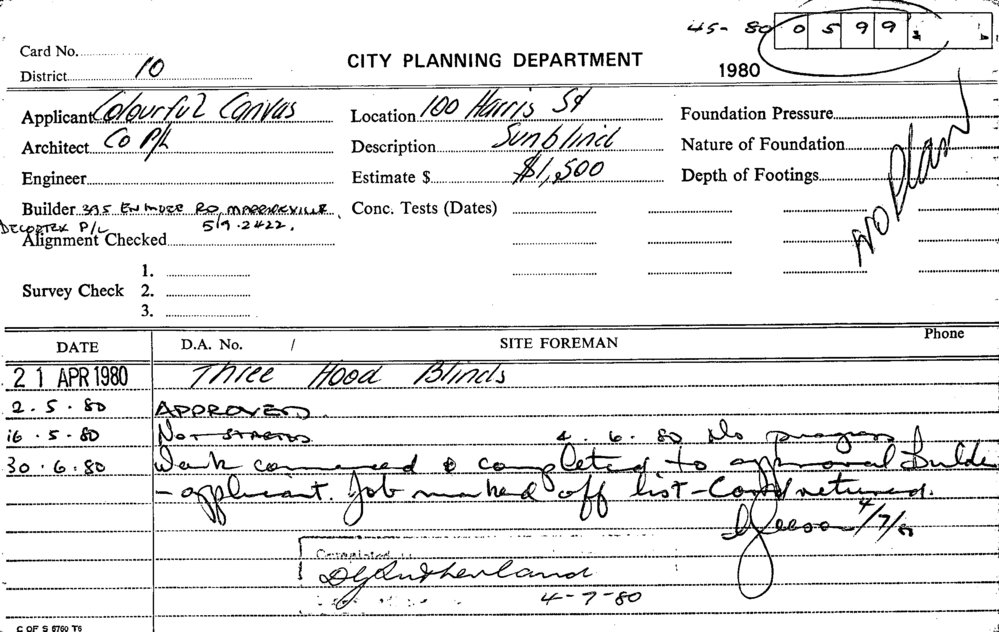 45-80 0599
Card No.
District 10
CITY PLANNING DEPARTMENT
1980
Applicant Colourful Canvas
Location 100 Harris St
Foundation Pressure
Architect Co P/L
Description Sunblind
Nature of Foundation
Engineer
Estimate $ $1,500
Depth of Footings
NO Plan
Builder 395 ENMORE RD, MARRICKVILLE
Conc. Tests (Dates)
P/L 519.2422.
Alignment Checked
1.
Survey Check 2.
3.
DATE D.A. No. / SITE FOREMAN Phone
21 APR 1980 Three Hood Blinds
2.5.80 APPROVED.
16.5.80 NOT STARTED 4.6.80 No progress
30.6.80 Work commenced & completed to approval Builder
- applicant. Job marked off list - Card returned.
4/7/80
Completed
DG Sutherland
4-7-80
C OF S 6760 T6